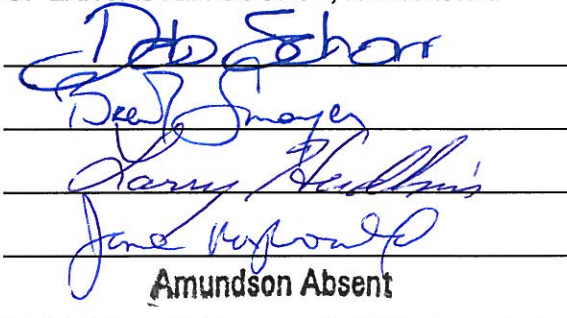 Deb Schorr
Brent Smoyer
Larry Hudkins
Jane Raybould
Amundson Absent